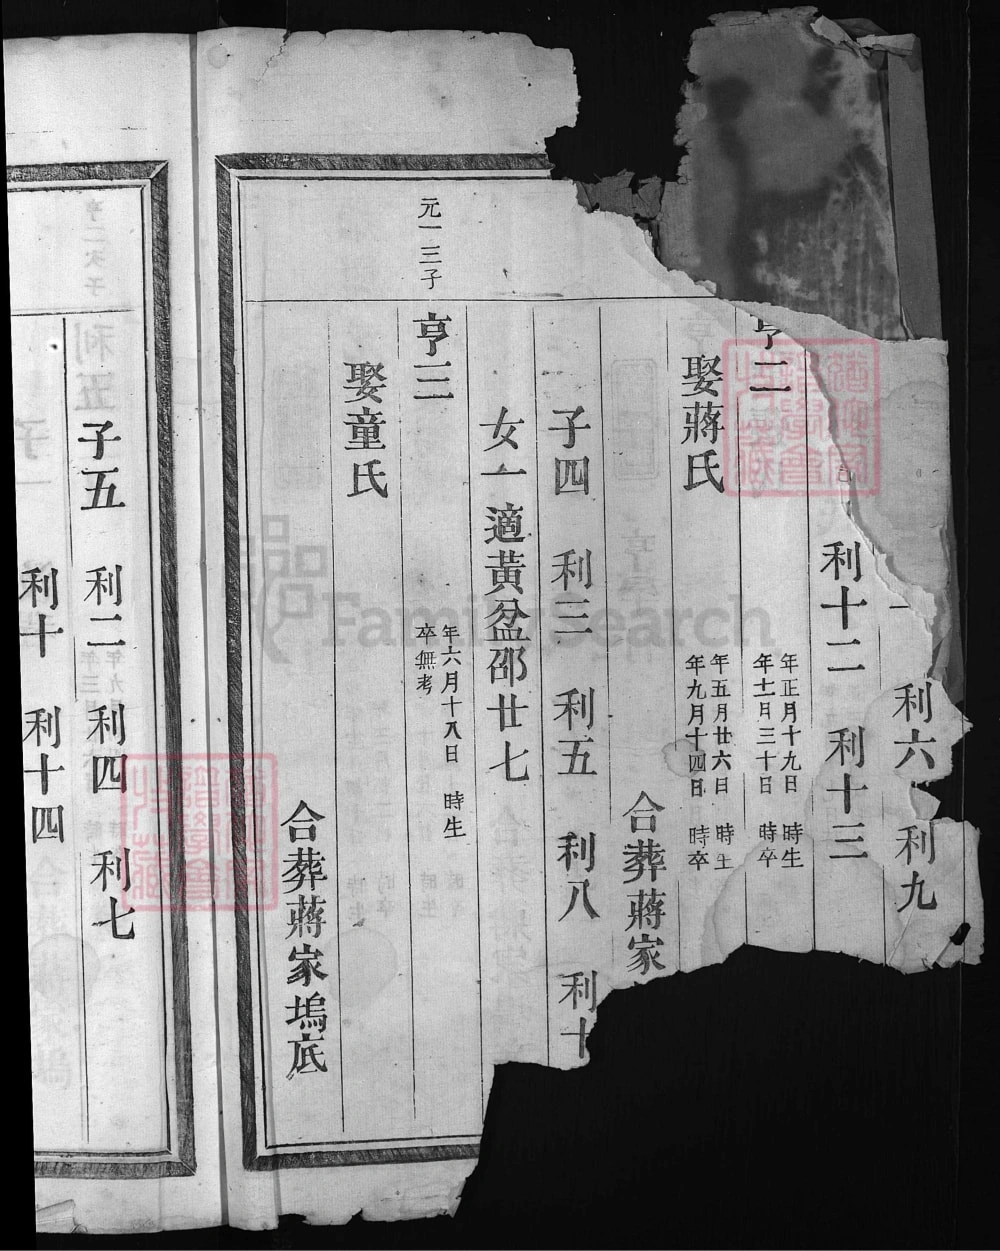 利六 利九
利十二 利十三
亨二
年正月十九日 時生
年十二月三十日 時卒
娶蔣氏
年五月廿六日 時生
年九月十四日 時卒
合葬蔣家
子四 利三 利五 利八 利十
女一適黃盆邵廿七
元一三子
亨三
年六月十八日 時生
卒無考
娶童氏
合葬蔣家塢底
子五 利二 利四 利七
利十 利十四
FamilySearch